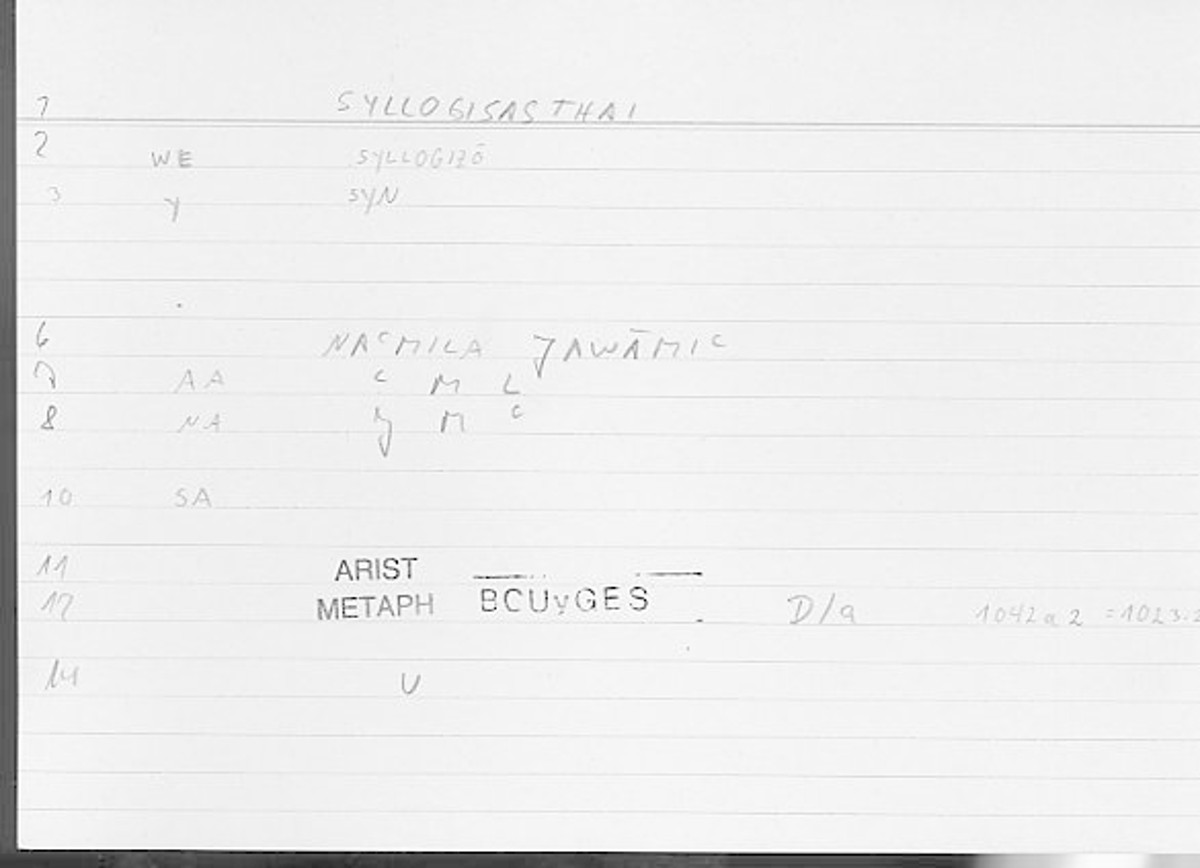 1 SYLLOGISASTHAI
2 WE SYLLOGIZŌ
3 Y SYN
6 NAᶜMILA JAWĀMIᶜ
7 AA ᶜ M L
8 NA J M ᶜ
10 SA
11 ARIST
12 METAPH BCUyGES D/a 1042a2 =1023.2
14 U